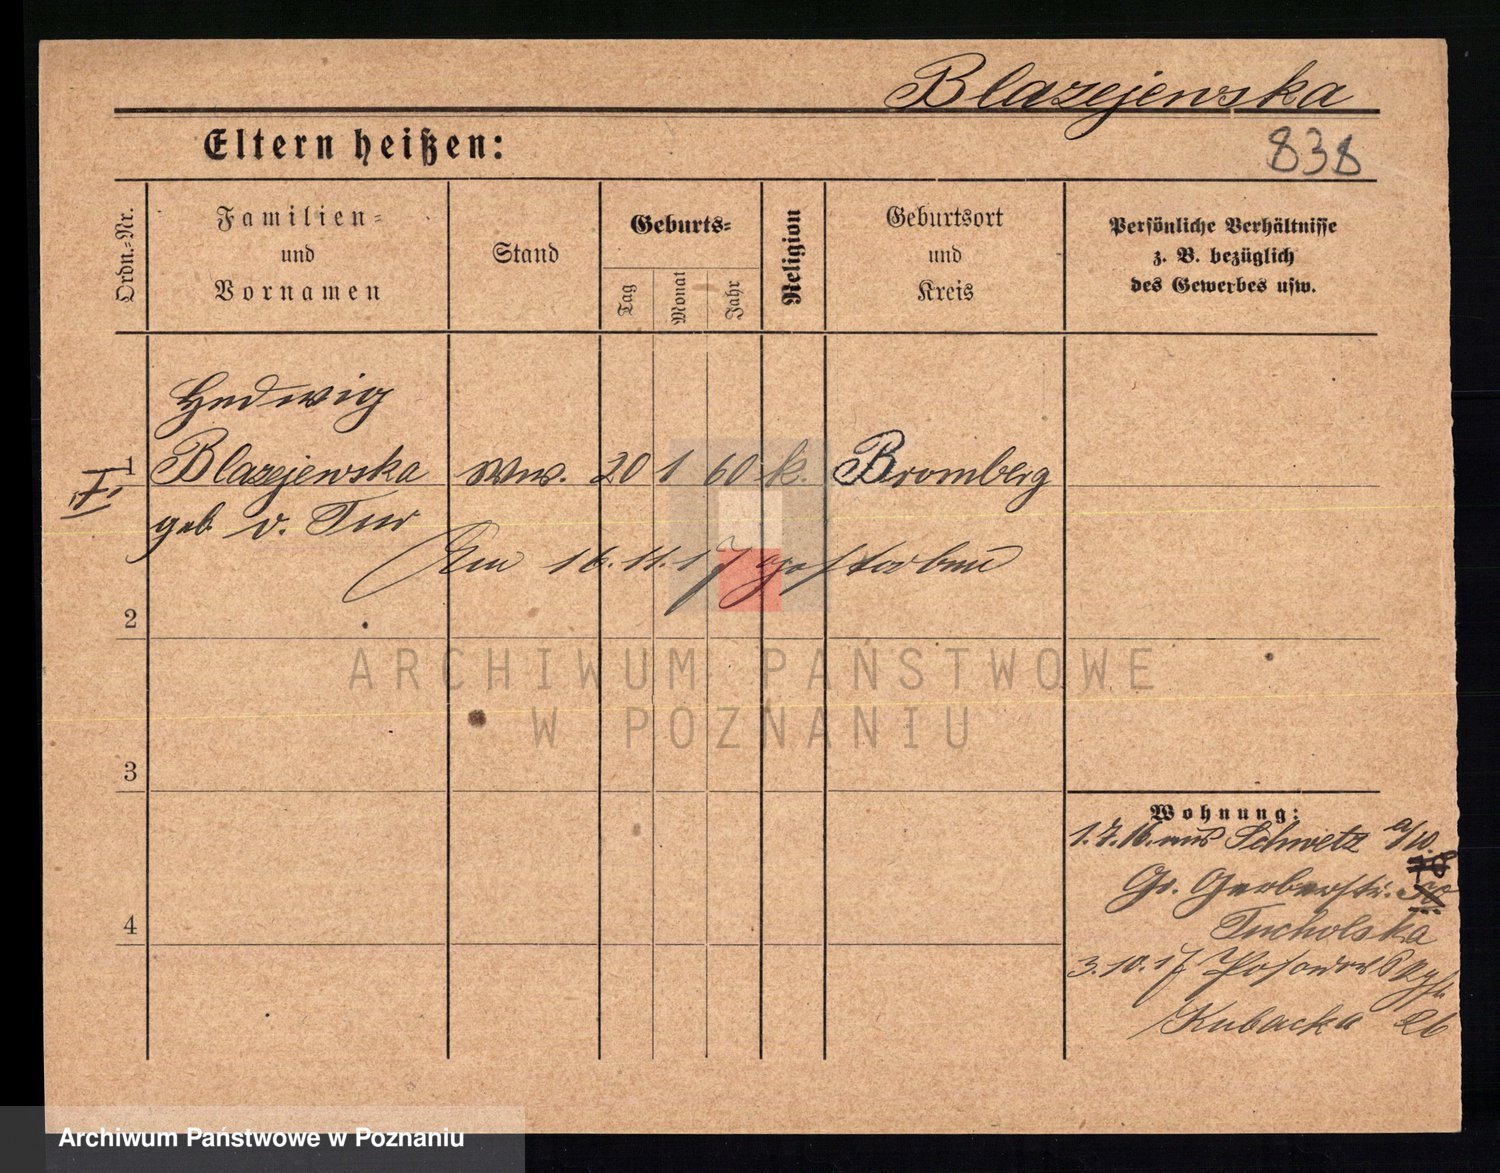 Blazejewska
Eltern heißen:
838
Ordn.-Nr.
Familien-
und
Vornamen
Stand
Geburts-
Tag
Monat
Jahr
Religion
Geburtsort
und
Kreis
Persönliche Verhältnisse
z. B. bezüglich
des Gewerbes usw.
Hedwig
1 Blazejewska Ww. 20 1 60 k. Bromberg
geb. v. Tur
Am 16.11.17 gestorben
2
ARCHIWUM PAŃSTWOWE
W POZNANIU
3
Wohnung:
1.7.16. aus Schwetz
Gr. Gerberstr.
4
Tucholska
3.10.17
Kubacka 26
Archiwum Państwowe w Poznaniu